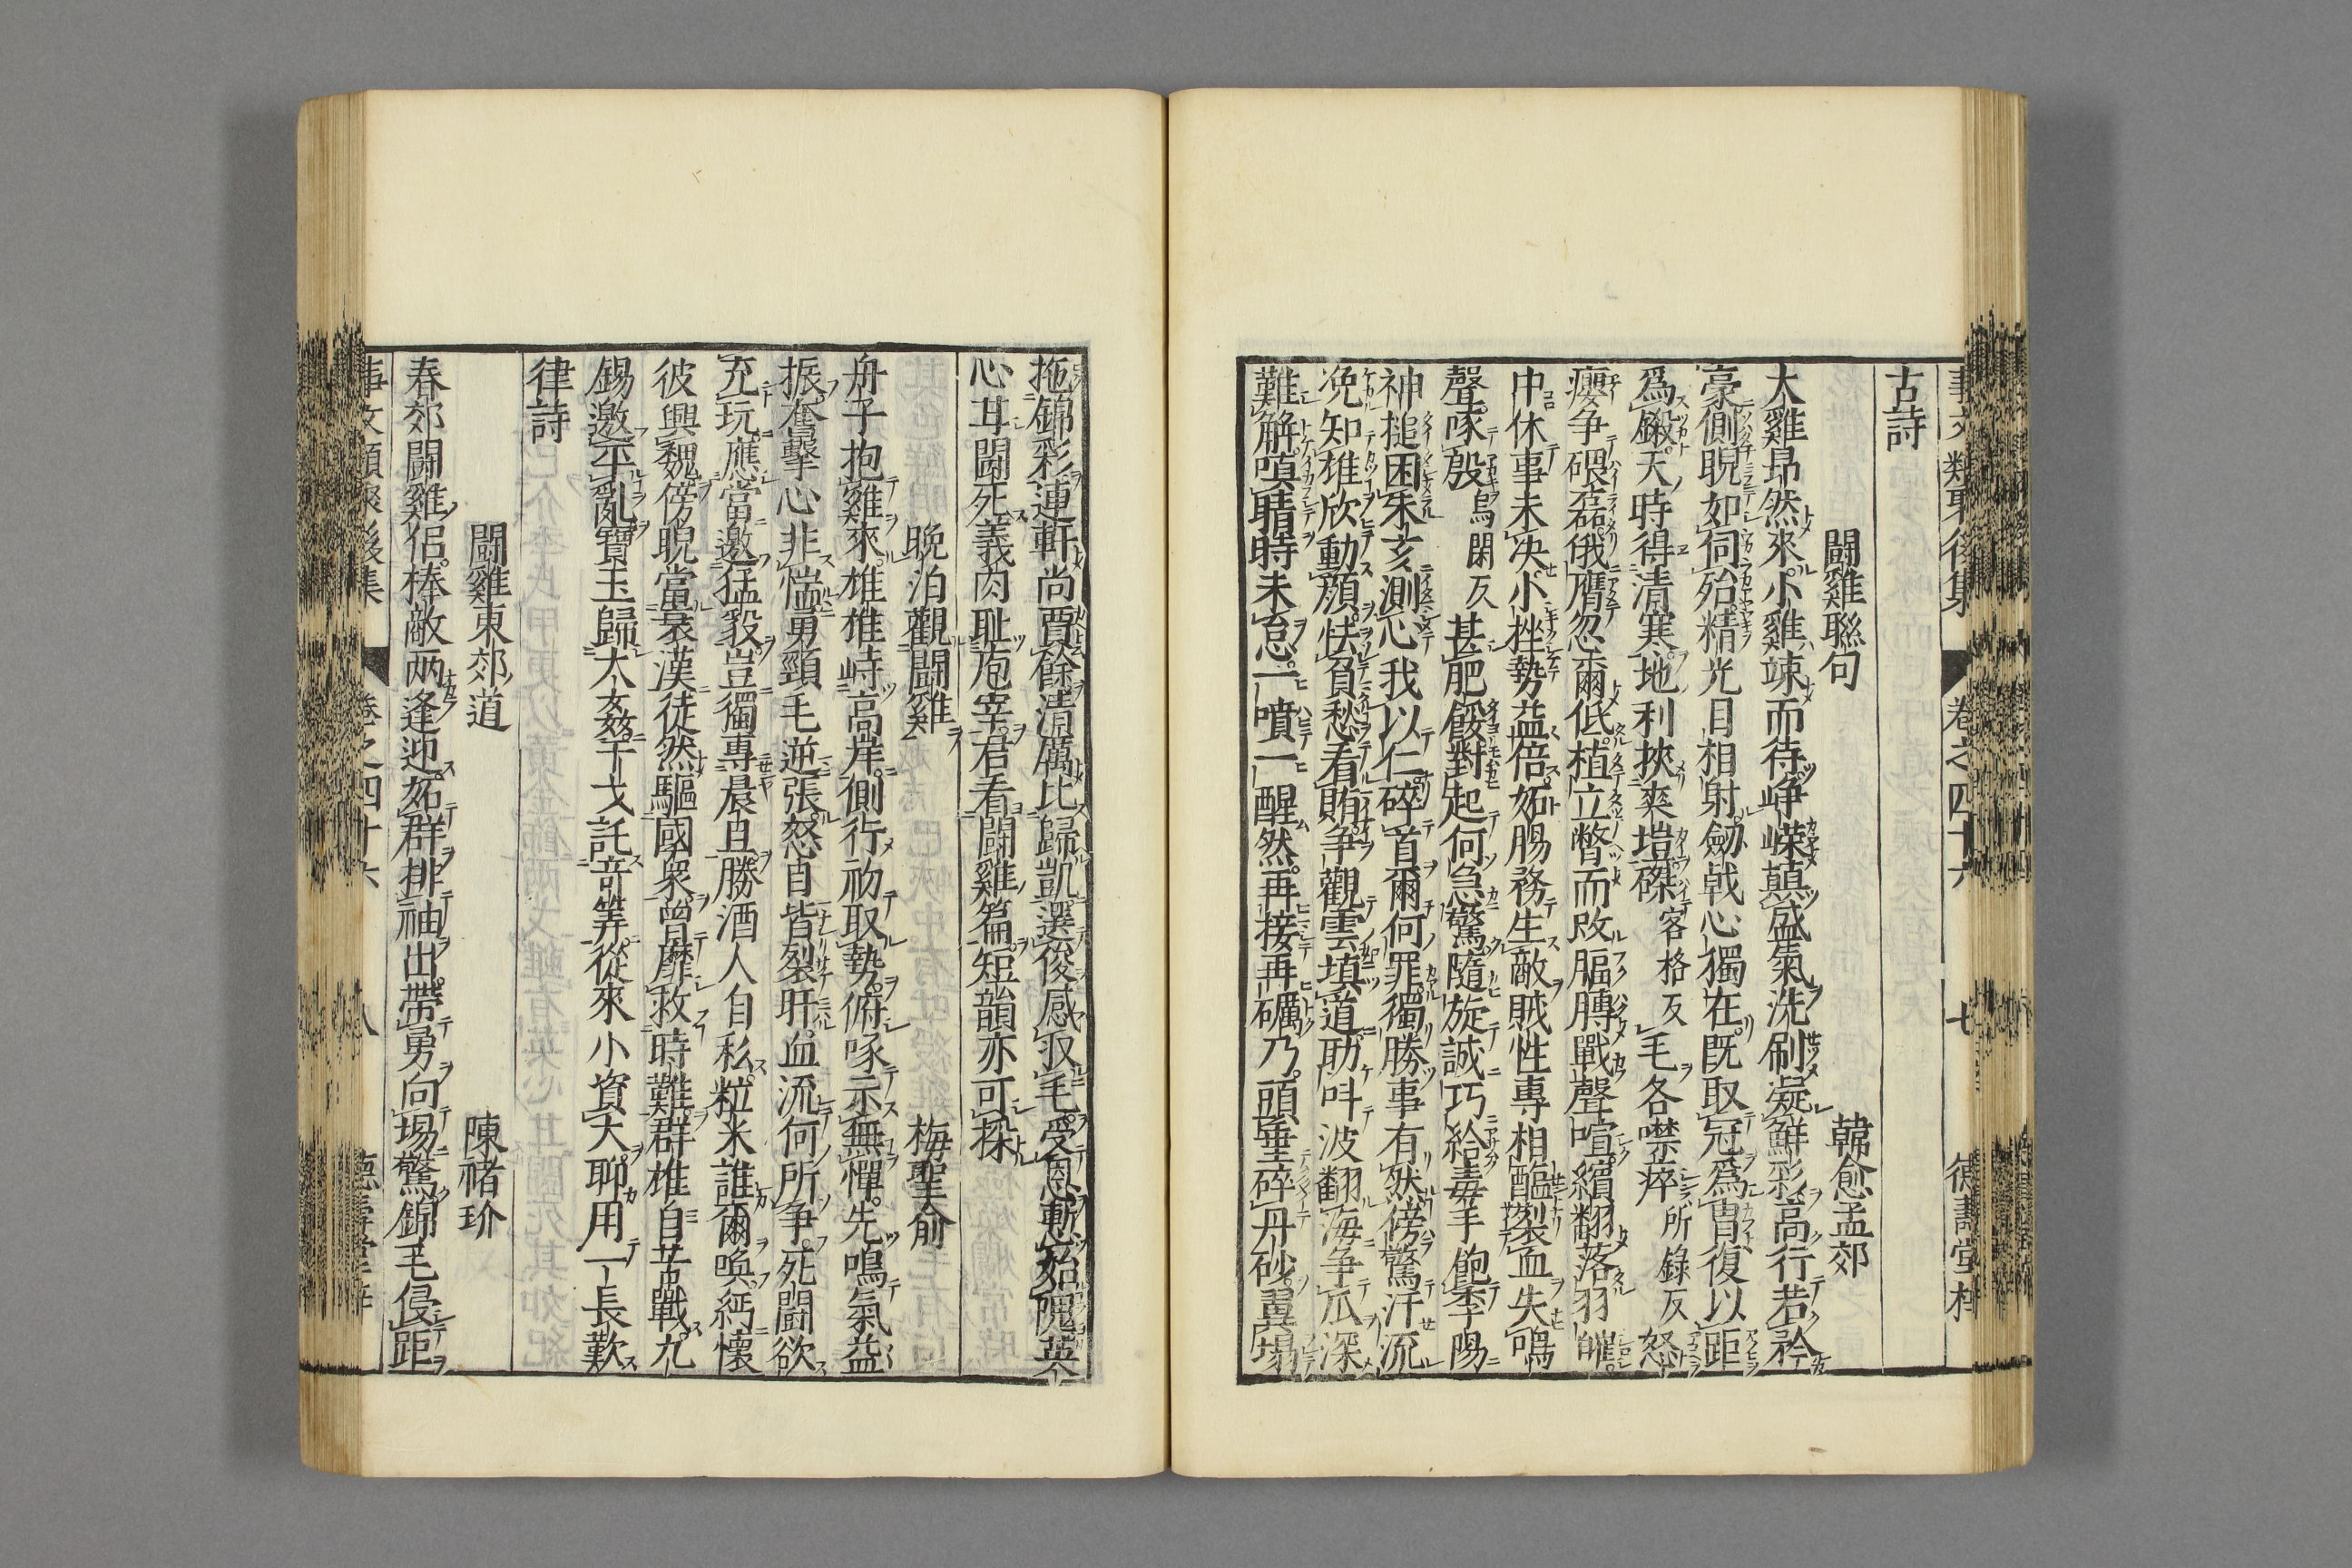 事文類聚後集 卷之四十六 七 德壽堂梓
古詩
鬪雞聯句 韓愈孟郊
大雞昂然來小雞竦而待崢嶸顛盛氣洗刷凝鮮彩高行若矜
豪側睨如伺殆精光目相射劒戟心獨在既取冠爲胄復以距
爲鐓天時得清寒地利挾爽塏磔客格反毛各噤瘁所錄反怒
癭争碨磊俄膺忽爾低植立瞥而改腷膊戰聲喧繽翻落羽皠
中休事未决小挫勢益倍妬腸務生敵賊性專相醢裂血失鳴
聲啄殷烏閑反甚肥餒對起何急驚隨旋誠巧紿毒手飽李陽
神槌困朱亥測心我以仁碎首爾何罪獨勝事有然傍驚汗流
浼知雄欣動顔怯負愁看賄争觀雲填道助呌波翻海争爪深
難解嗔睛時未怠一噴一醒然再接再礪乃頭垂碎丹砂翼塌
拖錦彩連軒尚賈餘清厲比歸凱選俊感収毛受恩慙始隗英
心甘鬪死義肉耻庖宰君看鬪雞篇短韻亦可採
晚泊觀鬪雞 梅聖俞
舟子抱雞來雄雄峙高岸側行初取勢俯啄示無憚先鳴氣益
振奮擊心非愞勇頸毛逆張怒目眥裂肝血流何所争死鬪欲
充玩應當邀猛毅豈獨專晨旦勝酒人自私粒米誰爾喚緬懷
彼興魏傍睨當衰漢徒然驅國衆曾靡救時難群雄自苦戰九
錫邀平亂寶玉歸大姦干戈託奇筭從來小資大聊用一長歎
律詩
鬪雞東郊道 陳禇玠
春郊鬪雞侣捧敵两逢迎妬群排袖出帶勇向場驚錦毛侵距
事文類聚後集 卷之四十六 八